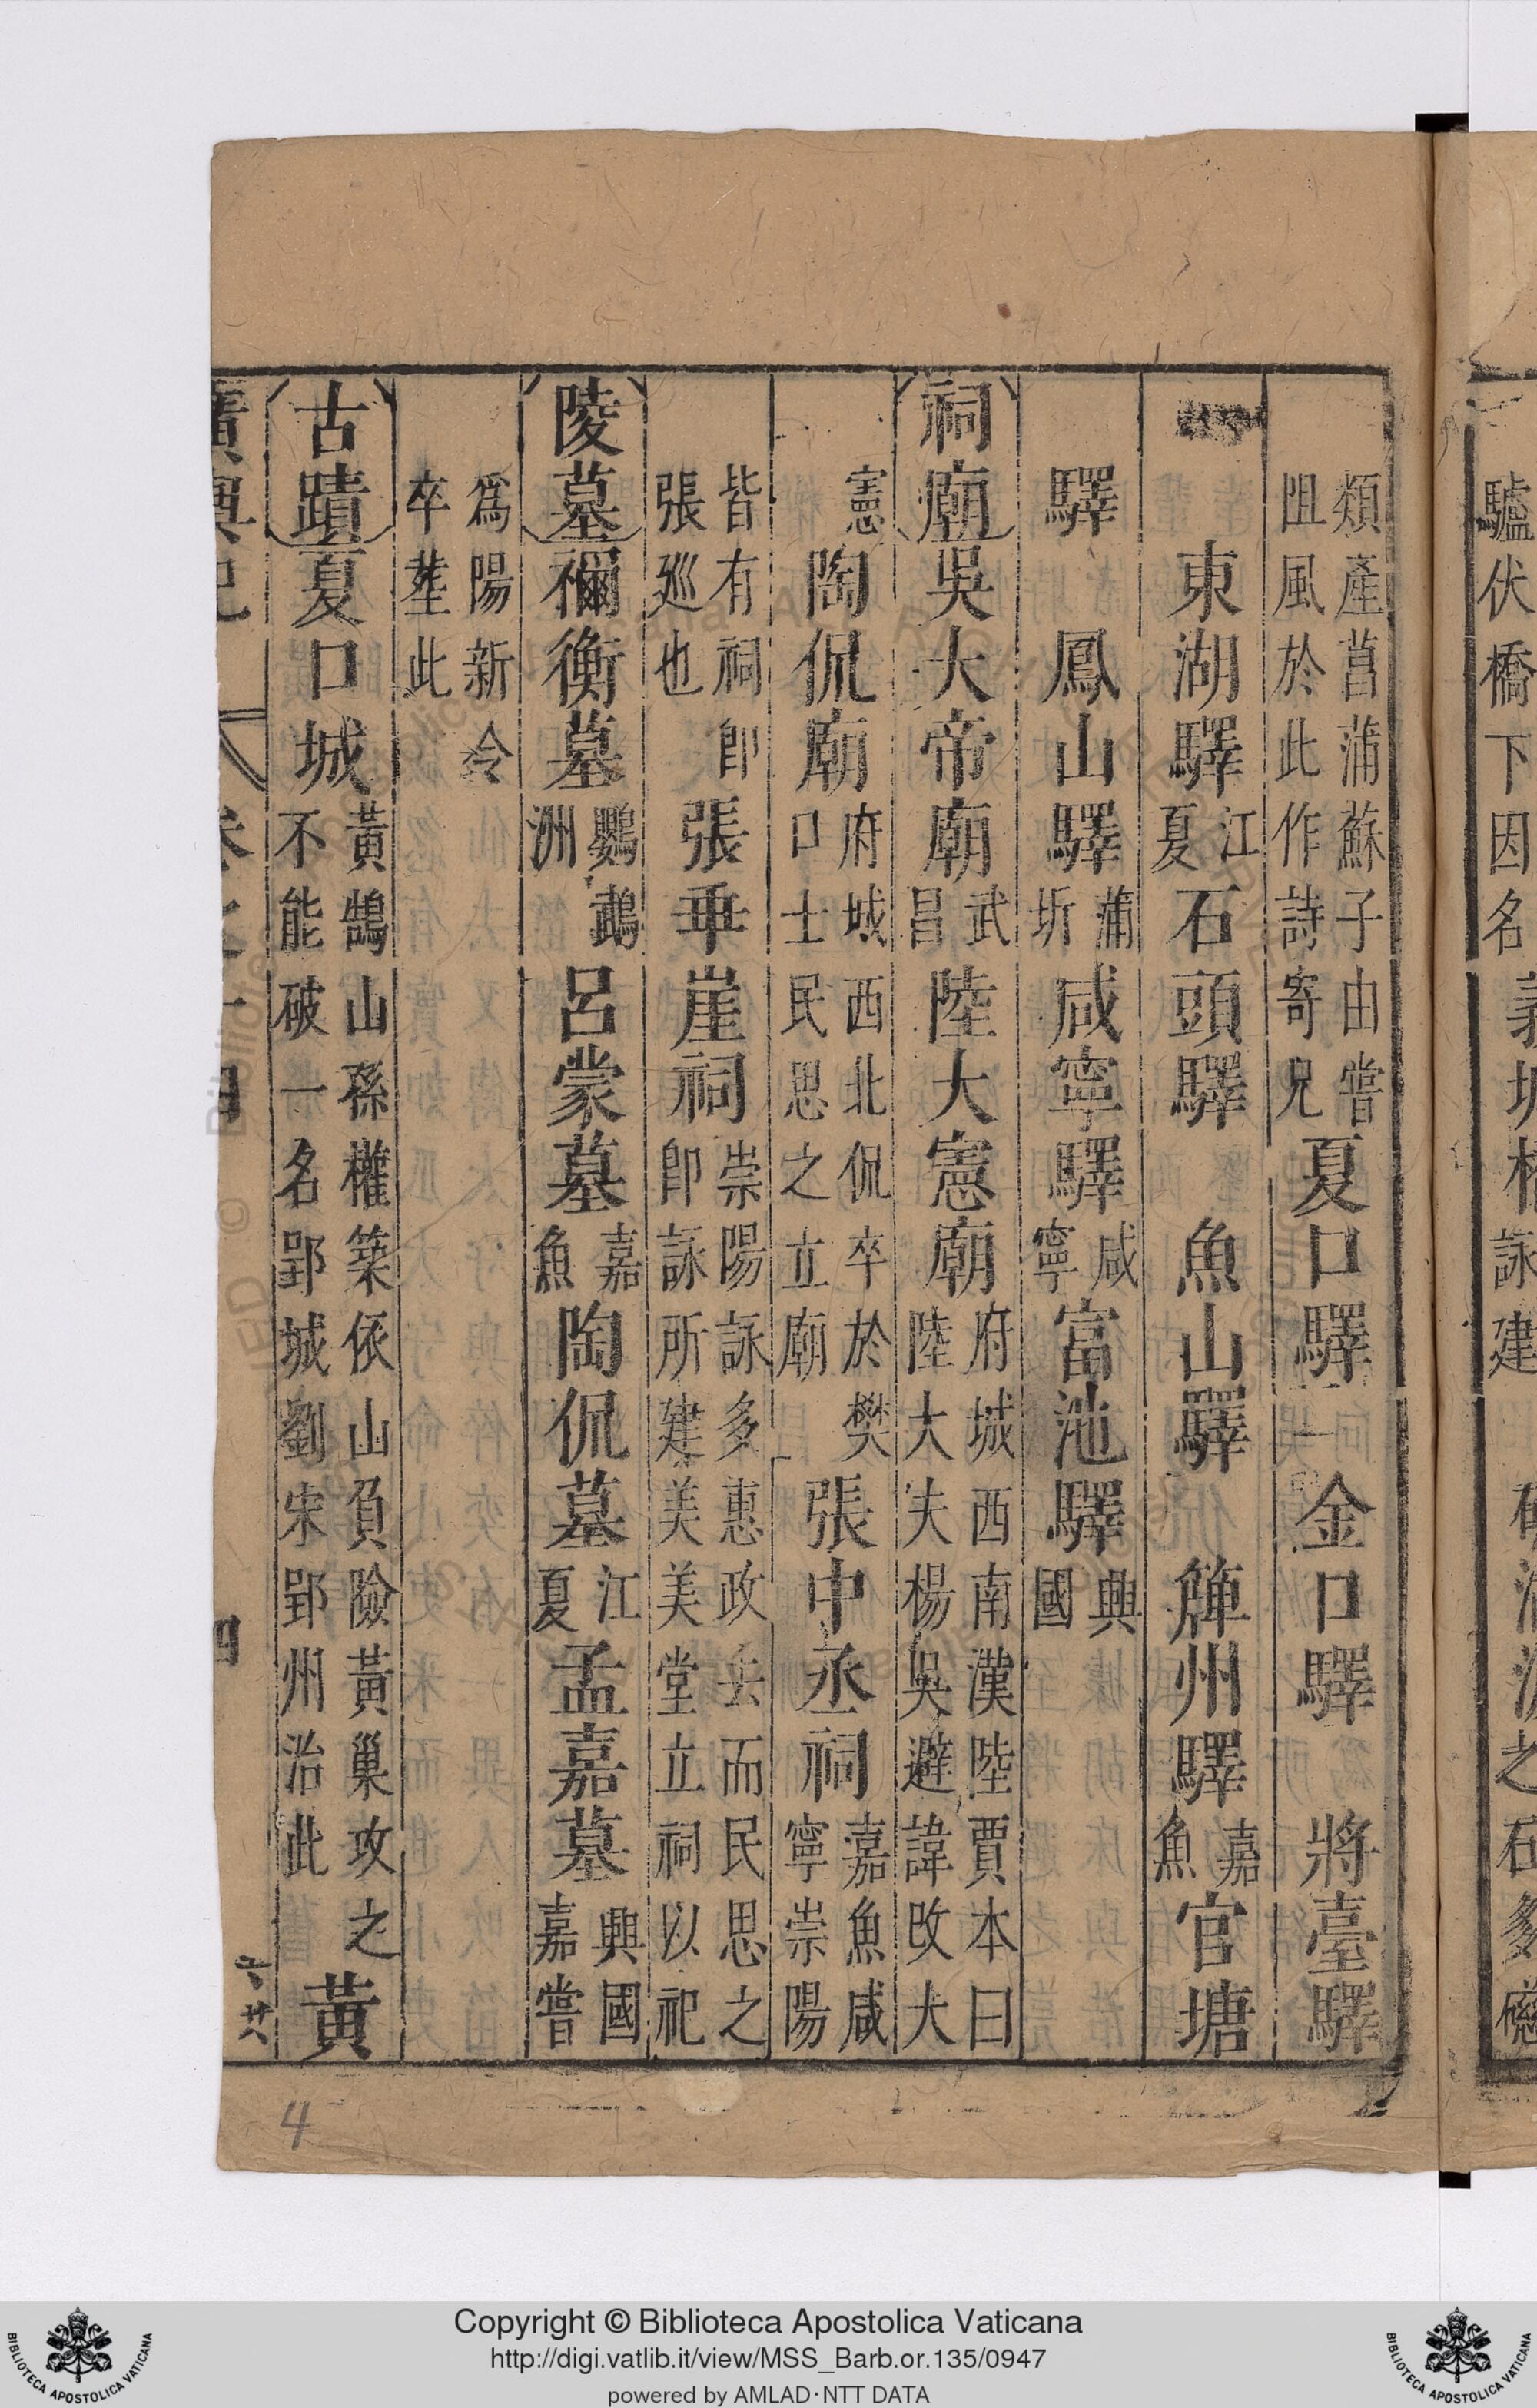 驢伏橋下因名
詠建
類產菖蒲蘇子由嘗
阻風於此作詩寄兄
夏口驛 金口驛 將臺驛
東湖驛
江
夏
石頭驛 魚山驛 簰州驛
嘉
魚
官塘
驛 鳳山驛
蒲
圻
咸寧驛
咸
寧
富池驛
興
國
祠廟
吳大帝廟
武
昌
陸大憲廟
府城西南漢陸賈本曰
陸大夫楊吳避諱改大
憲
陶侃廟
府城西北侃卒於樊
口士民思之立廟
張中丞祠
嘉魚咸
寧崇陽
皆有祠卽
張廵也
張乖崖祠
崇陽詠多惠政去而民思之
卽詠所建美美堂立祠以祀
陵墓
禰衡墓
鸚鵡
洲
呂蒙墓
嘉
魚
陶侃墓
江
夏
孟嘉墓
興國
嘉嘗
爲陽新令
卒塟此
古蹟
夏口城
黃鵠山孫權築依山負險黃巢攻之
不能破一名郢城劉宋郢州治此
黃
廣輿記
卷之十四
四
六廿八
4
Copyright © Biblioteca Apostolica Vaticana
http://digi.vatlib.it/view/MSS_Barb.or.135/0947
powered by AMLAD·NTT DATA
BIBLIOTECA APOSTOLICA VATICANA
BIBLIOTECA APOSTOLICA VATICANA